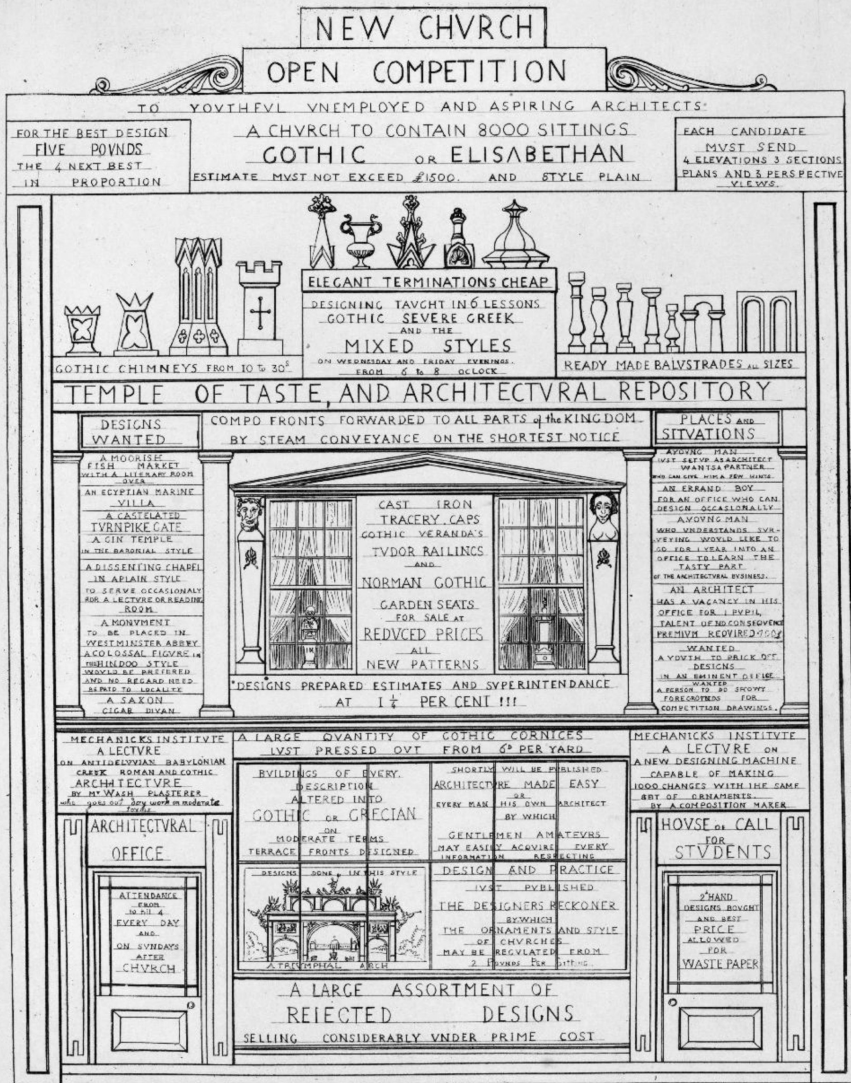 NEW CHVRCH
OPEN COMPETITION
TO YOVTHFVL VNEMPLOYED AND ASPIRING ARCHITECTS
FOR THE BEST DESIGN
FIVE POVNDS
THE 4 NEXT BEST
IN PROPORTION
A CHVRCH TO CONTAIN 8000 SITTINGS
GOTHIC OR ELISABETHAN
ESTIMATE MVST NOT EXCEED £1500. AND STYLE PLAIN
EACH CANDIDATE
MVST SEND
4 ELEVATIONS 3 SECTIONS
PLANS AND 3 PERSPECTIVE
VIEWS.
ELEGANT TERMINATIONS CHEAP
DESIGNING TAVGHT IN 6 LESSONS
GOTHIC SEVERE GREEK
AND THE
MIXED STYLES
ON WEDNESDAY AND FRIDAY EVENINGS.
FROM 6 to 8 OCLOCK
GOTHIC CHIMNEYS FROM 10 to 30s
READY MADE BALVSTRADES ALL SIZES
TEMPLE OF TASTE, AND ARCHITECTVRAL REPOSITORY
DESIGNS
WANTED
COMPO FRONTS FORWARDED TO ALL PARTS of the KINGDOM
BY STEAM CONVEYANCE ON THE SHORTEST NOTICE
PLACES AND
SITVATIONS
A MOORISH
FISH MARKET
WITH A LITERARY ROOM
OVER
AN EGYPTIAN MARINE
VILLA
A CASTELATED
TVRNPIKE GATE
A GIN TEMPLE
IN THE BARONIAL STYLE
A DISSENTING CHAPEL
IN APLAIN STYLE
TO SERVE OCCASIONALY
FOR A LECTVRE OR READING
ROOM
A MONVMENT
TO BE PLACED IN
WESTMINSTER ABBEY
A COLOSSAL FIGVRE IN
THE HINDOO STYLE
WOVLD BE PREFERED
AND NO REGARD NEED
BE PAID TO LOCALITE
A SAXON
CIGAR DIVAN
CAST IRON
TRACERY. CAPS
GOTHIC VERANDA'S
TVDOR RAILINGS
AND
NORMAN GOTHIC
GARDEN SEATS
FOR SALE AT
REDVCED PRICES
ALL
NEW PATTERNS
AYOVNG MAN
IVST SETVP AS ARCHITECT
WANTS A PARTNER
WHO CAN GIVE HIM A FEW HINTS
AN ERRAND BOY
FOR AN OFFICE WHO CAN
DESIGN OCCASIONALLY
AYOVNG MAN
WHO VNDERSTANDS SVR-
VEYING WOVLD LIKE TO
GO FOR 1 YEAR INTO AN
OFFICE TO LEARN THE
TASTY PART
OF THE ARCHITECTVRAL BVSINESS.
AN ARCHITECT
HAS A VACANCY IN HIS
OFFICE FOR 1 PVPIL
TALENT OF NO CONSEQVENCE
PREMIVM REQVIRED
WANTED
A YOVTH TO PRICK OFF
DESIGNS
IN AN EMINENT OFFICE
WANTED
A PERSON TO DO SHOWY
FOREGROVNDS FOR
COMPETITION DRAWINGS.
DESIGNS PREPARED ESTIMATES AND SVPERINTENDANCE
AT 1¼ PER CENT !!!
MECHANICKS INSTITVTE
A LECTVRE
ON ANTIDELVVIAN BABYLONIAN
GREEK ROMAN AND GOTHIC
ARCHITECTVRE
BY Mr WASH PLASTERER
who goes out day work on moderate
terms
A LARGE QVANTITY OF GOTHIC CORNICES
IVST PRESSED OVT FROM 6D PER YARD
MECHANICKS INSTITVTE
A LECTVRE ON
A NEW DESIGNING MACHINE
CAPABLE OF MAKING
1000 CHANGES WITH THE SAME
SET OF ORNAMENTS
BY A COMPOSITION MAKER
BVILDINGS OF EVERY.
DESCRIPTION
ALTERED INTO
GOTHIC OR GRECIAN
ON
MODERATE TERMS
TERRACE FRONTS DESIGNED
SHORTLY WILL BE PVBLISHED
ARCHITECTVRE MADE EASY
OR
EVERY MAN HIS OWN ARCHITECT
BY WHICH
GENTLEMEN AMATEVRS
MAY EASILY ACQVIRE EVERY
INFORMATION RESPECTING
DESIGN AND PRACTICE
IVST PVBLISHED
THE DESIGNERS RECKONER
BY WHICH
THE ORNAMENTS AND STYLE
OF CHVRCHES
MAY BE REGVLATED FROM
2 POVNDS PER SITTING
DESIGNS DONE IN THIS STYLE
A TRIVMPHAL ARCH
ARCHITECTVRAL
OFFICE
ATTENDANCE
FROM
10 till 4
EVERY DAY
AND
ON SVNDAYS
AFTER
CHVRCH
HOVSE OF CALL
FOR
STVDENTS
2D HAND
DESIGNS BOVGHT
AND BEST
PRICE
ALLOWED
FOR
WASTE PAPER
A LARGE ASSORTMENT OF
REIECTED DESIGNS
SELLING CONSIDERABLY VNDER PRIME COST